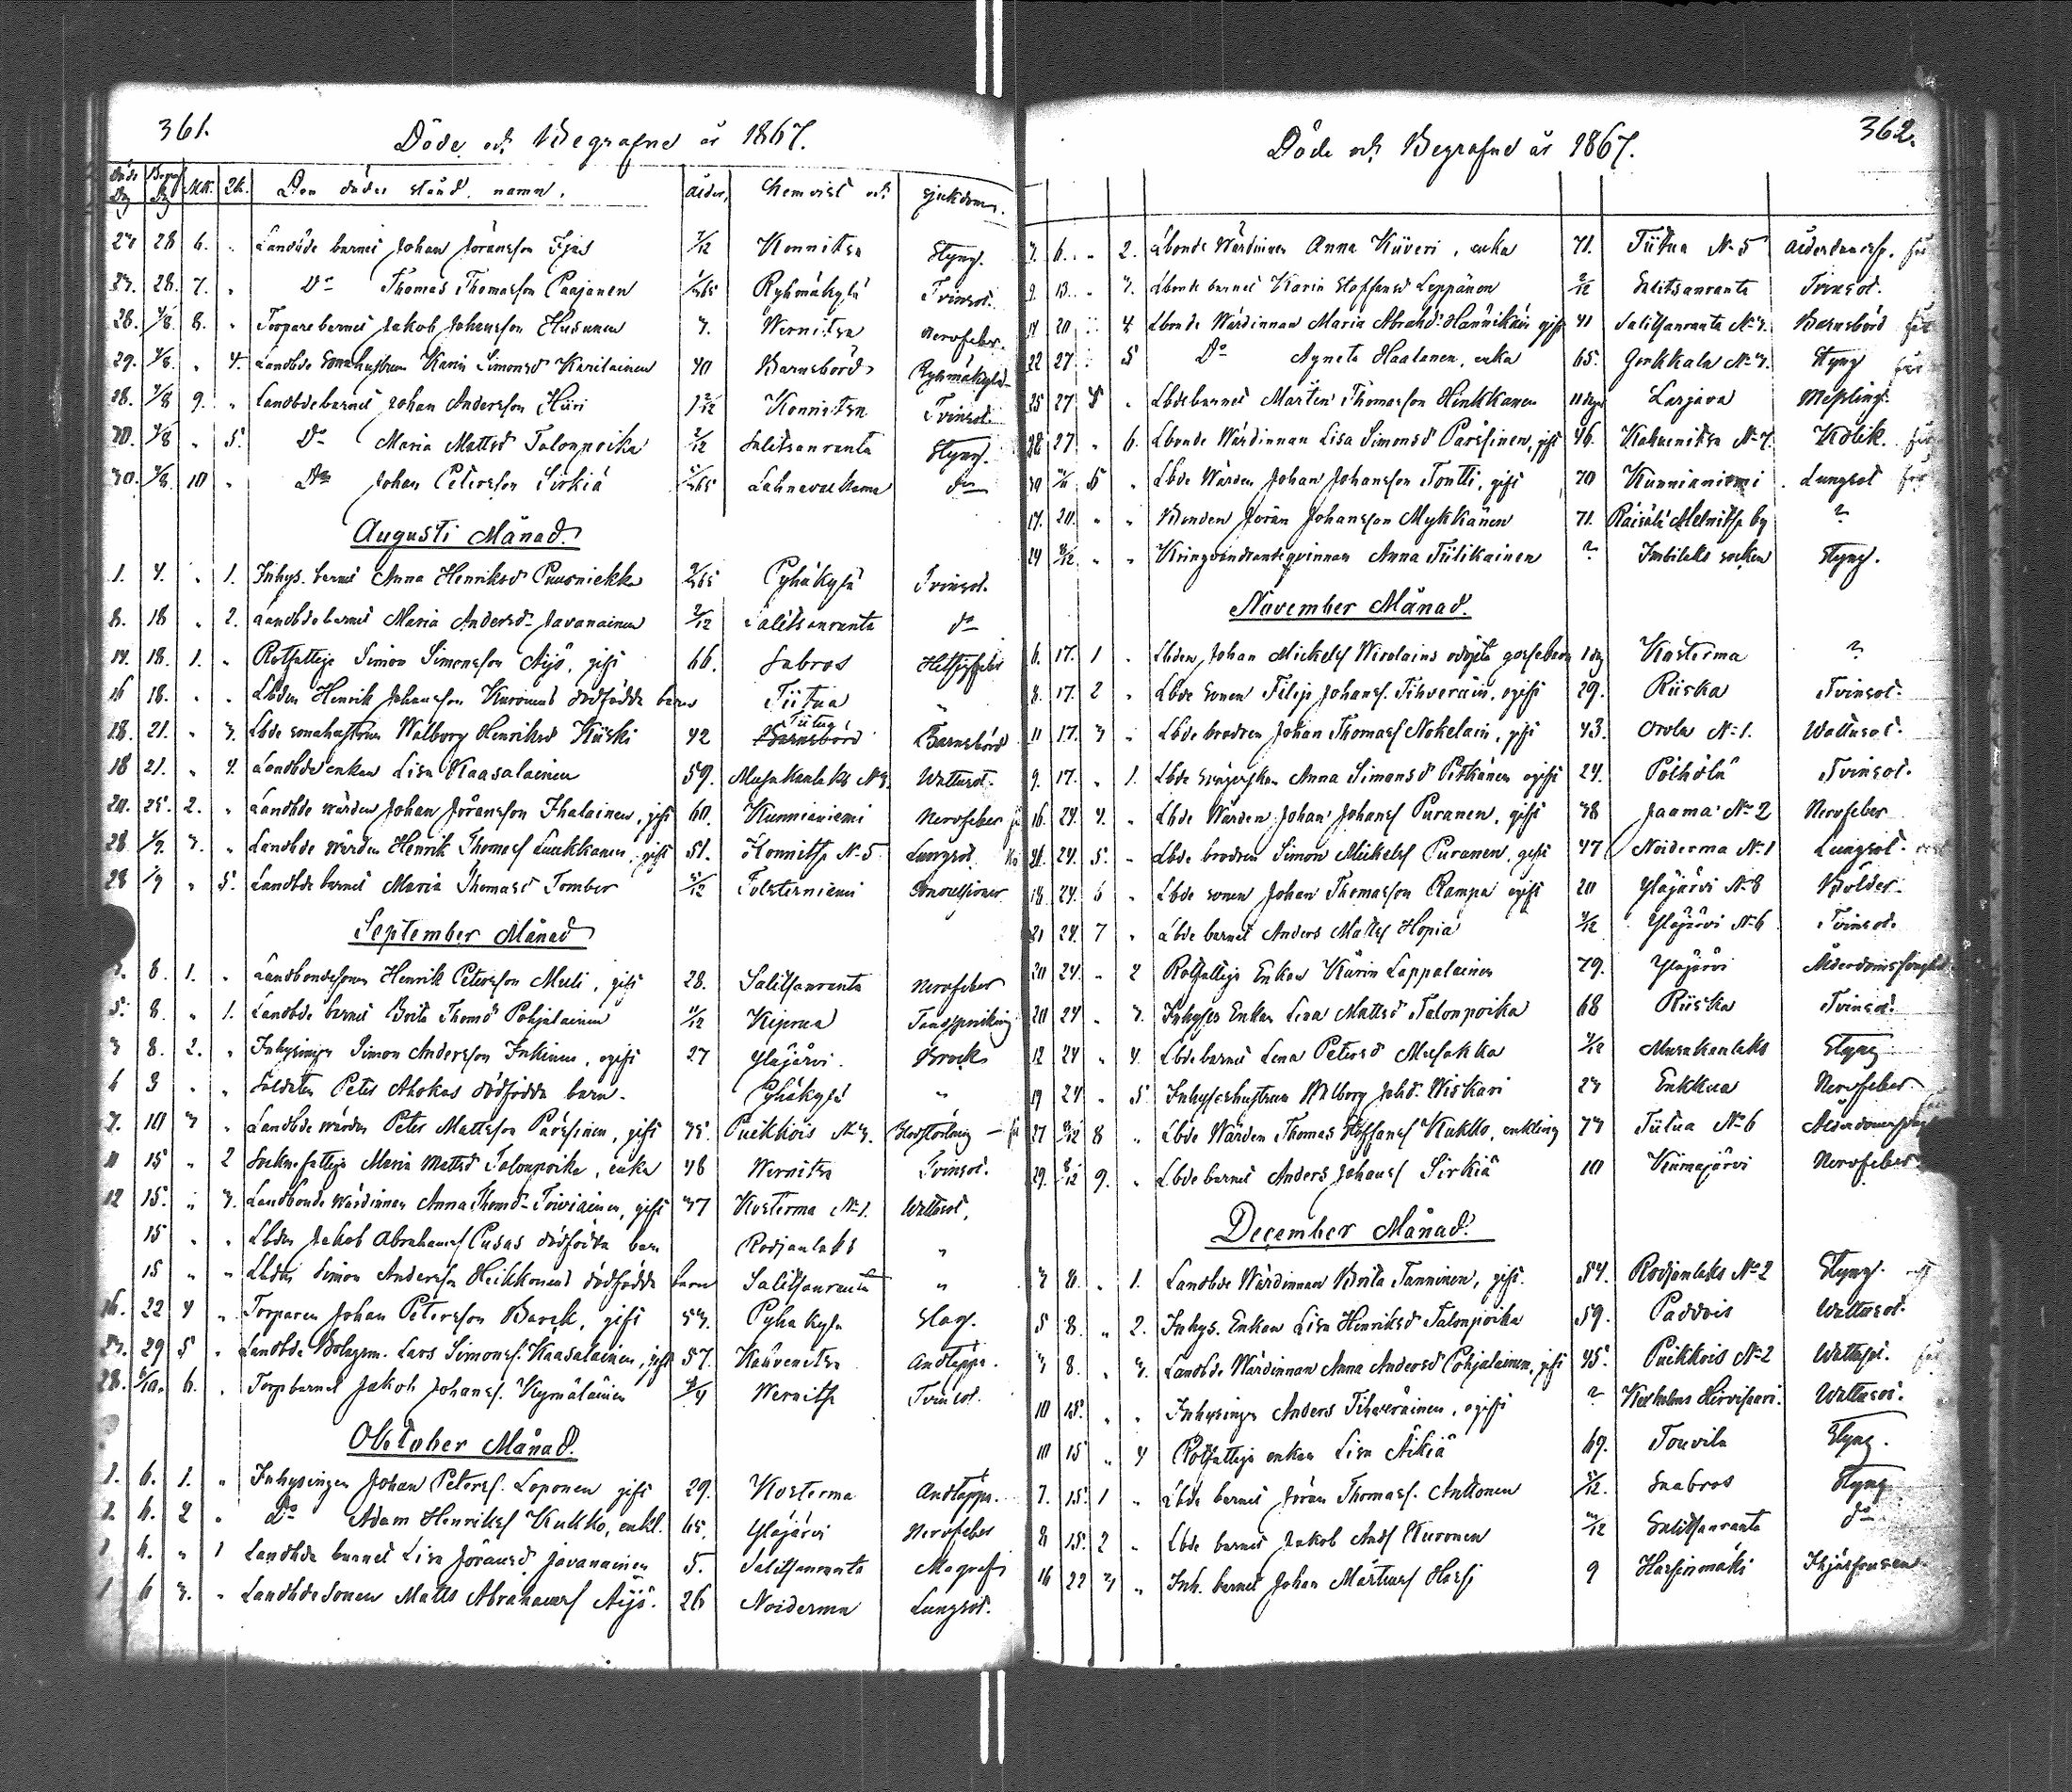 361.
Döde och Begrafne år 1867.
Döde Dag Begr. Dag Mk. Qk. Den dödes stånd, namn. Ålder, Hemvist och sjukdom.
27 28 6. " Landbde barnet Johan Jöransson Ijäs 7/12 Konnitsa Styng.
27. 28. 7. " Do Thomas Thomasson Paajanen /365 Ryhmäkylä Tvinsot.
28. 4/8. 8. " Torparebarnet Jakob Johansson Husunen 3. Wernitsa Nervfeber.
29. 4/8. " 4. Landbde Sonahustrun Karin Simonsd Karilainen 40 Barnsbörd Ryhmäkylä
28. 4/8 9. " Landbdebarnet Johan Andersson Hiiri 1 2/12 Konnitsa Tvinsot.
30. 4/8 " 5. Do Maria Mattsd Talonpoika 2/12 Salitsanranta Styng.
30. 4/8. 10 " Do Johan Petersson Sirkiä /365 Lahnavalkama do
Augusti Månad.
1. 4. " 1. Inhys. barnet Anna Henriksd Puusniekka /365 Pyhäkylä Tvinsot.
8. 18 " 2. Landbdebarnet Maria Andersd Javanainen 2/12 Salitsanranta do
14. 18. 1. " Rotfattige Simon Simonsson Äijö, gift 66. Sabros Hetsigfeber
16 18. " " Lbden Henrik Johansson Kuronens dödfödde barn Tiitua "
18. 21. " 3. Lbde sonahustrun Walborg Henriksd Kiiski 42 Tiitua Barnsbörd
18 21. " 4. Landbde enkan Lisa Kaasalainen 59. Musakanlaks No 3. Wattusot.
20. 25. 2. " Landbde wärden Johan Jöransson Ihalainen, gift 60. Kunnianiemi Nervfeber
28 1/9. 3. " Landbde wärden Henrik Thomass Luukkanen, gift 51. Konnitsa No 5 Lungsot
28 1/9 " 5. Landbde barnet Maria Thomasd Tomber 5/12 Tolsterniemi Convulsioner
September Månad
8. 1. " Landbondesonen Henrik Petersson Muli, gift 28. Salitsanranta Nervfeber
5. 8. " 1. Landbde barnet Brita Thomd Pohjalainen 11/12 Kiperua Tandsprickning
3 8. 2. " Inhysingen Simon Andersson Inkinen, ogift 27 Yläjärvi. Brock
6 8 " " Soldaten Peter Ahokas dödfödda barn. Pyhäkylä "
7. 10 3 " Landbde wärden Peter Mattsson Pärssinen, gift 35. Puikkois No 3. Blodstörtning
11 15 " 2 Socknefattige Maria Mattsd Talonpoika, enka 48 Wernitsa Tvinsot.
12 15. " 3. Landbonde Wärdinnan Anna Thomd Toiviainen, gift 37 Kosterma No 1. Wattusot.
15 " " Lbden Jakob Abrahamss Pusas dödfödda barn Rodjanlaks "
15 " " Lbdes Simon Andersson Heikkonens dödfödda barn Salitsanranta "
16. 22 4 " Torparen Johan Petersson Barck, gift 53. Pyhäkylä Slag.
23. 29 5 " Landbde Bolagsm. Lars Simonss. Kaasalainen, gift 57. Kahvenitsa Andtäppa.
28. 6/10. 6. " Torpbarnet Jakob Johanss. Kymäläinen 3/4 Wernitsa Tvinsot.
Oktober Månad.
1. 6. 1. " Inhysingen Johan Peterss. Loponen gift 29. Kosterma Andtäppa.
2. 6. 2 " Do Adam Henrikss Kukko, enkl. 65. Yläjärvi Nervfeber
6. " 1 Landbde barnet Lisa Jöransd Javanainen 5. Salitsanranta Magref
1 6 3. " Landbdesonen Matts Abrahamss Äijö. 26 Noiderma Lungsot.
362.
Döde och Begrafne år 1867.
3. 6. " 2. Lbonde Wärdinnan Anna Kiiveri, enka 71. Tiitua No 5 Ålderdomssv.
9. 13. " 3. Lbonde barnet Karin Staffansd Leppänen 2/12 Salitsanranta Tvinsot.
14 20 " 4. Lbonde Wärdinnan Maria Abrahd Hännikäin gift 41 Salitsanranta No 3. Barnsbörd
22 27 " 5 Do Agneta Haatanen, enka 65. Gorkkala No 3. Styng
25 27 4 " Lbdebarnet Mårten Thomasson Hinkkanen 11 dagar Larjava Messling
28 27 " 6. Lbonde Wärdinnan Lisa Simonsd Pärssinen, gift 46. Kahvenitsa No 7. Kolik.
5 " Lbde Wärden Johan Johansson Tontti, gift 70 Kunnianiemi Lungsot
17. 20. " " Bonden Jöran Johansson Mykkänen 71. Räisälä Melnitsa by ?
24 8/12. " " Kringvandrande qvinnan Anna Tiilikainen ? Imbilaks socken Styng.
November Månad.
6. 17. 1 " Lbden Johan Mickelss Wirolains odöpta gossebarn 1 dag Kosterma ?
8. 17. 2 " Lbde sonen Filip Johanss. Tihveräin, ogift 29. Riiska Tvinsot.
11 17. 3 " Lbde brodren Johan Thomass Nokelain, gift 43. Orola No 1. Wattusot.
9. 17. " 1. Lbde svägerskan Anna Simonsd Pitkänen ogift 24. Pölhölä Tvinsot.
16. 24 4. " Lbde Wärden Johan Johanss Puranen, gift 38 Jaama No 2 Nervfeber
21. 24. 5. " Lbde brodren Simon Mickelss Puranen, gift 47 Noiderma No 1 Lungsot.
18. 24. 6 " Lbde sonen Johan Thomasson Rampa ogift 20 Yläjärvi No 8 Bölder.
21 24. 7 " Lbde barnet Anders Mattss Hopia /12 Yläjärvi No 6 Tvinsot.
20 24. " 2 Rotfattige Enkan Karin Lappalainen 79. Yläjärvi Ålderdomssvaghet
20 24 " 3. Inhyses Enkan Lisa Mattsd Talonpoika 68 Riiska Tvinsot.
12 24 " 4. Lbde barnet Lena Petersd Musakka /12 Musakanlaks Styng
19 24 " 5 Inhyseshustrun Walborg Johd. Wiskari 23 Enkkua Nervfeber.
27 8/12 8 " Lbde Wärden Thomas Staffanss Kukko, enkling 73 Tiitua No 6 Ålderdomssvag
29. 8/12 9. " Lbde barnet Anders Johanss Sirkiä 10 Kiimajärvi Nervfeber.
December Månad.
3 8. " 1. Landbde Wärdinnan Brita Tanninen, gift. 54. Rodjanlaks No 2 Styng.
5 8. " 2. Inhys. Enkan Lisa Henriksd Talonpoika 59. Paddois Wattusot.
3 8. " 3. Landbde Wärdinnan Anna Andersd Pohjalainen, gift 45. Puikkois No 2 Wattusot.
10 15. " " Inhysingen Anders Tihveräinen, ogift ? Wattusot.
10 15 " 4 Rotfattige enkan Lisa Äikiä 69. Touvila Styng.
7. 15. 1 " Lbde barnet Jöran Thomass. Anttonen /12. Saabros Styng
8 15. 2 " Lbde barnet Jakob Ands Kuronen /12 Salitsanranta do
16 22 3 " Inh. barnet Johan Mårtenss Hassi 9 Hassinmäki